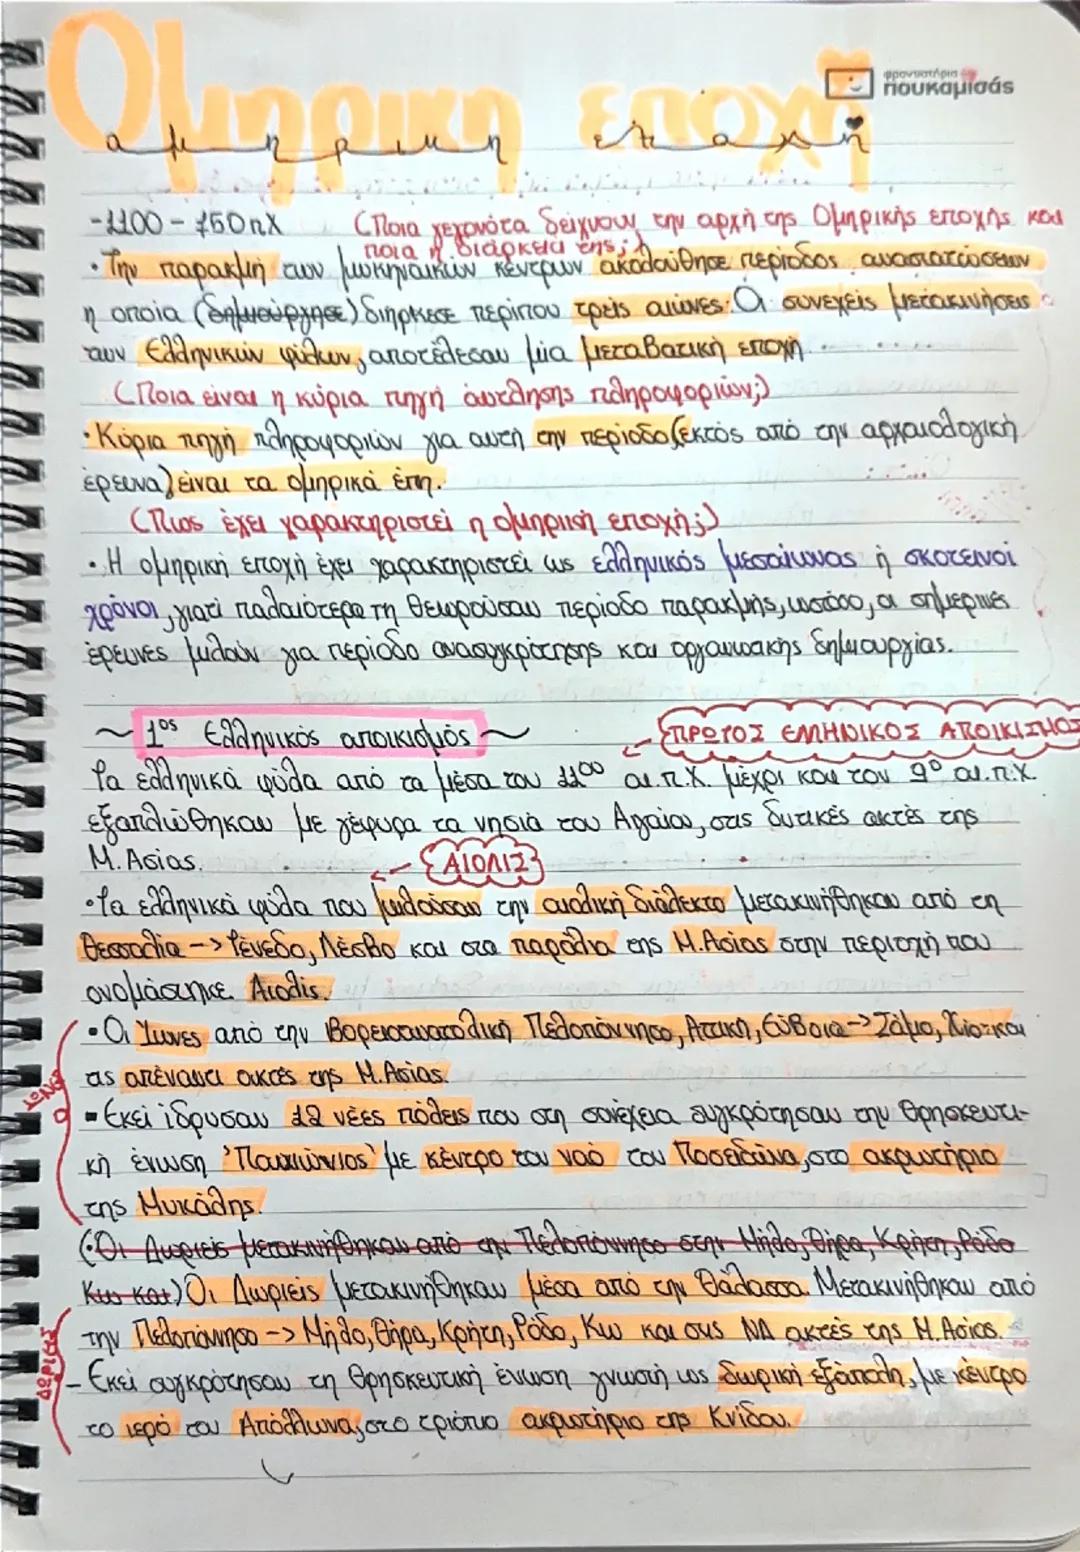 Ομηρικη εποχή
ομηρικη εποχή
φροντιστήρια
πουκαμισάς
-1100 - 750 πΧ (Ποια γεγονότα δείχνουν την αρχή της Ομηρικής εποχής και
ποια η διάρκεια της;)
•Την παρακμή των μυκηναικών κέντρων ακολούθησε περίοδος αναστατώσεων
η οποία (δημιούργησε) διήρκεσε περίπου τρεις αιώνες. Οι συνεχείς μετακινήσεις
των Ελληνικών φύλων, αποτέλεσαν μία μεταβατική εποχή.
(Ποια είναι η κύρια πηγή άντλησης πληροφοριών;)
•Κύρια πηγή πληροφοριών για αυτή την περίοδο (εκτός από την αρχαιολογική
έρευνα) είναι τα ομηρικά έπη.
(Πως έχει χαρακτηριστεί η ομηρική εποχή;)
•Η ομηρική εποχή έχει χαρακτηριστεί ως ελληνικός μεσαίωνας ή σκοτεινοί
χρόνοι, γιατί παλαιότερα τη θεωρούσαν περίοδο παρακμής, ωστόσο, οι σημερινές
έρευνες μιλούν για περίοδο ανασυγκρότησης και οργανωακής δημιουργίας.
~1ος Ελληνικός αποικισμός~
ΠΡΩΤΟΣ ΕΛΛΗΝΙΚΟΣ ΑΠΟΙΚΙΣΜΟΣ
Τα ελληνικά φύλα από τα μέσα του 11ου αι.π.Χ. μέχρι και τον 9ο αι.π.Χ.
εξαπλώθηκαν με γέφυρα τα νησιά του Αιγαίου, στις δυτικές ακτές της
Μ. Ασίας. ΑΙΟΛΙΣ
•Τα ελληνικά φύλα που μιλούσαν την αιολική διάλεκτο μετακινήθηκαν από τη
Θεσσαλία -> Τένεδο, Λέσβο και στα παράλια της Μ.Ασίας στην περιοχή που
ονομάστηκε Αιολίς.
ΙΩΝΕΣ
•Οι Ίωνες από την Βορειοανατολική Πελοπόννησο, Αττική, Εύβοια -> Σάμο, Χίο και
τις απέναντι ακτές της Μ.Ασίας.
-Εκεί ίδρυσαν 12 νέες πόλεις που στη συνέχεια συγκρότησαν την θρησκευτι-
κή ένωση 'Πανιώνιος' με κέντρο τον ναό του Ποσειδώνα, στο ακρωτήριο
της Μυκάλης.
(•Οι Δωριείς μετακινήθηκαν από την Πελοπόννησο στην Μήλο, Θήρα, Κρήτη, Ρόδο
Κω και) Οι Δωριείς μετακινήθηκαν μέσα από την θάλασσα. Μετακινήθηκαν από
την Πελοπόννησο -> Μήλο, Θήρα, Κρήτη, Ρόδο, Κω και στις ΝΔ ακτές της Μ.Ασίας.
ΔΩΡΙΕΙΣ
-Εκεί συγκρότησαν τη θρησκευτική ένωση γνωστή ως δωρική εξάπολη, με κέντρο
το ιερό του Απόλλωνα, στο τριόπιο ακρωτήριο της Κνίδου.